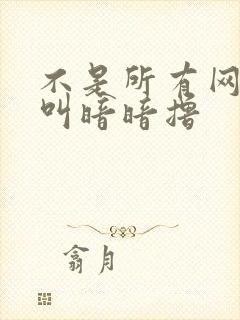 不是所有网
叫暗暗撸
翕月